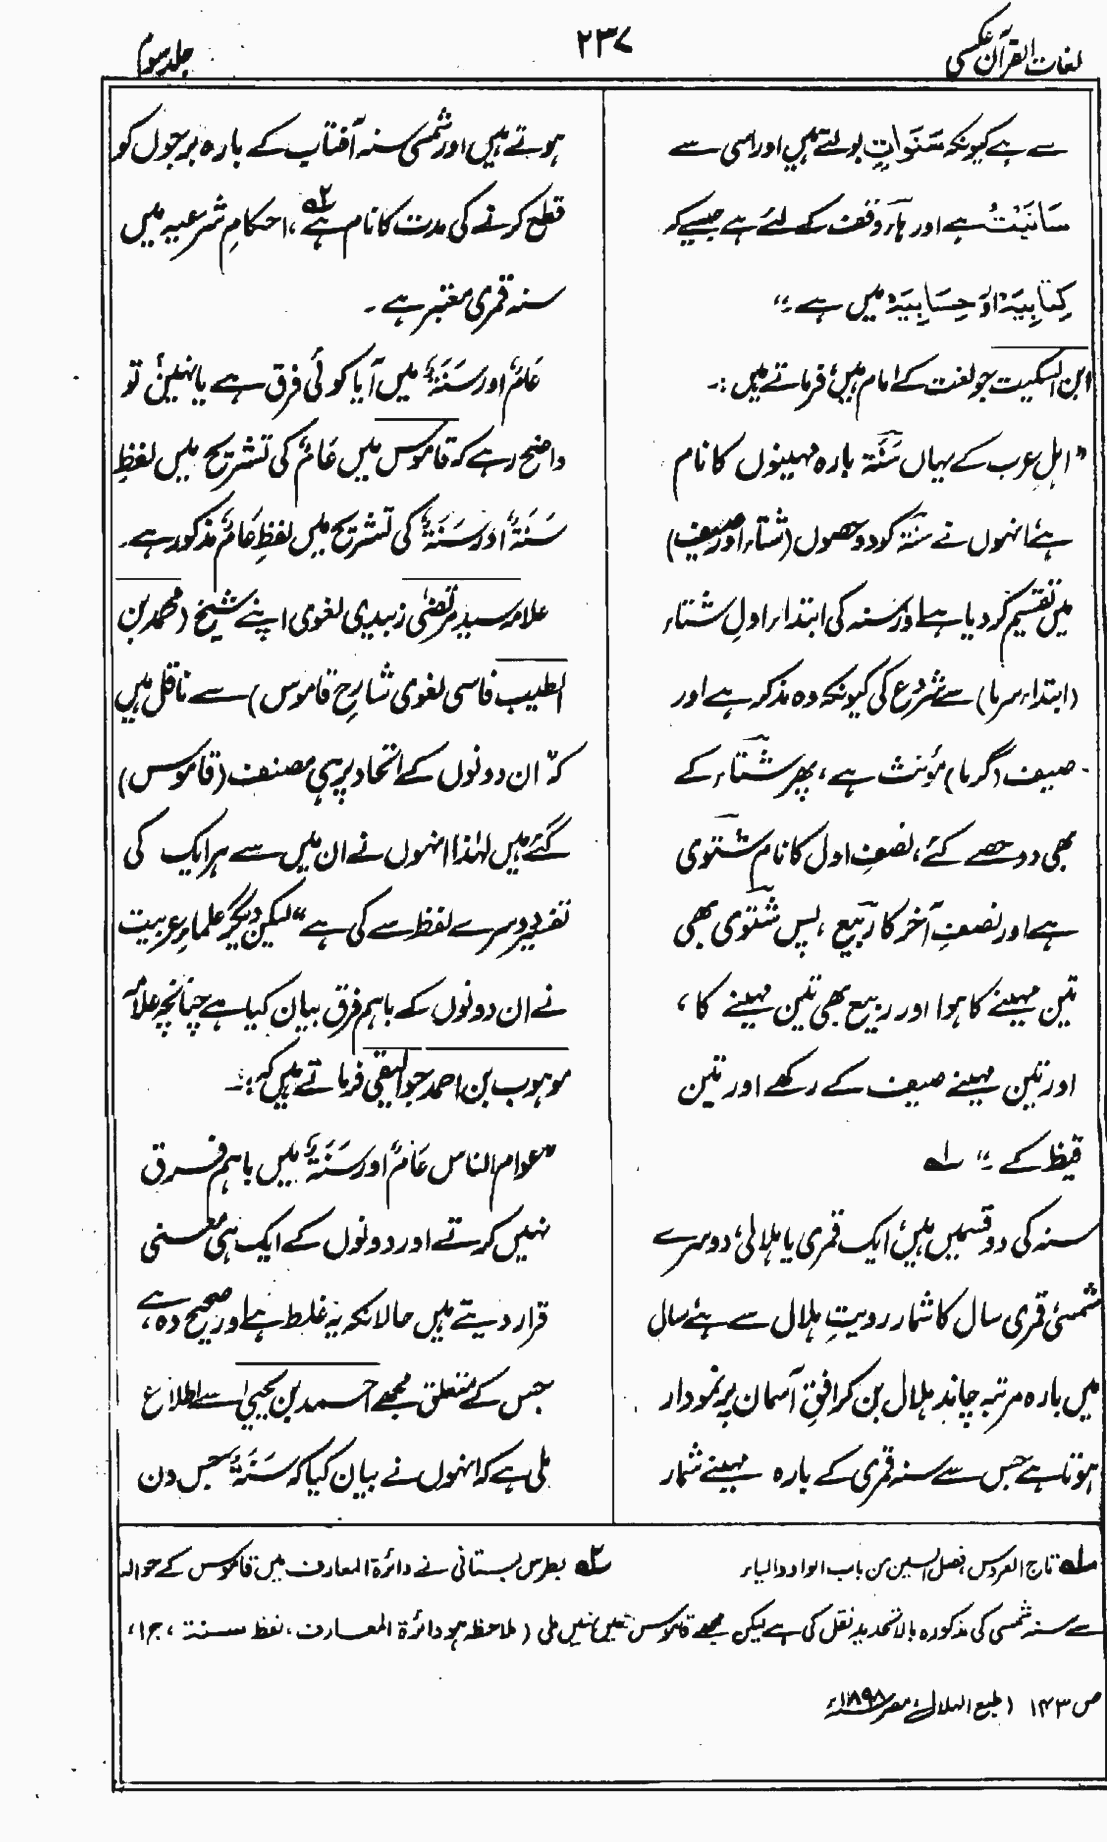 لغات القرآن عکسی
۲۳۷
جلد سوم
سے ہے کیونکہ سَنَوَاتٍ بولتے ہیں اور اسی سے
سَانَیْتُ ہے اور ہاء وقف کے لئے ہے جیسے کہ
کِتَابِیَہْ اور حِسَابِیَہْ میں ہے۔"
ابن السکیت جو لغت کے امام ہیں، فرماتے ہیں:۔
"اہلِ عرب کے یہاں سَنَۃ بارہ مہینوں کا نام
ہے، انہوں نے سنۃ کو دو حصوں (شتاء اور صیف)
میں تقسیم کر دیا ہے اور سنہ کی ابتداء اولِ شتاء
(ابتداء سرما) سے شروع کی کیونکہ وہ مذکر ہے اور
صیف (گرما) مؤنث ہے، پھر شتاء کے
بھی دو حصے کئے، نصفِ اول کا نام شتوی
ہے اور نصفِ آخر کا ربیع، پس شتوی بھی
تین مہینے کا ہوا اور ربیع بھی تین مہینے کا،
اور تین مہینے صیف کے رکھے اور تین
قیظ کے۔" ۱ه
سنہ کی دو قسمیں ہیں، ایک قمری یا ہلالی، دوسرے
شمسی، قمری سال کا شمار رویتِ ہلال سے ہے، سال
میں بارہ مرتبہ چاند ہلال بن کر افقِ آسمان پر نمودار
ہوتا ہے جس سے سنہ قمری کے بارہ مہینے شمار
ہوتے ہیں اور شمسی سنہ آفتاب کے بارہ برجوں کو
قطع کرنے کی مدت کا نام ہے ۲ه، احکامِ شرعیہ میں
سنہ قمری معتبر ہے۔
عَامٌ اور سَنَۃٌ میں آیا کوئی فرق ہے یا نہیں، تو
واضح رہے کہ قاموس میں عَامٌ کی تشریح میں لفظِ
سَنَۃٌ اور سَنَۃٌ کی تشریح میں لفظِ عَامٌ مذکور ہے۔
علامہ سید مرتضیٰ زبیدی لغوی اپنے شیخ (محمد بن
الطیب فاسی لغوی شارحِ قاموس) سے ناقل ہیں
کہ "ان دونوں کے اتحاد پر ہی مصنف (قاموس)
گئے ہیں لہٰذا انہوں نے ان میں سے ہر ایک کی
تفسیر دوسرے لفظ سے کی ہے" لیکن دیگر علماءِ عربیت
نے ان دونوں کے باہم فرق بیان کیا ہے چنانچہ علامہ
موہوب بن احمد جوالیقی فرماتے ہیں کہ:۔
"عوام الناس عَامٌ اور سَنَۃٌ میں باہم فرق
نہیں کرتے اور دونوں کے ایک ہی معنی
قرار دیتے ہیں حالانکہ یہ غلط ہے اور صحیح وہ ہے،
جس کے متعلق مجھے احمد بن یحییٰ سے اطلاع
ملی ہے کہ انہوں نے بیان کیا کہ سَنَۃٌ جس دن
۱ه تاج العروس فصل السین من باب الواو والیاء ۲ه بطرس بستانی نے دائرۃ المعارف میں قاموس کے حوالہ
سے سنہ شمسی کی مذکورہ بالا تحدید نقل کی ہے لیکن مجھے قاموس میں نہیں ملی (ملاحظہ ہو دائرۃ المعارف، لفظ سنۃ، ج ۱۰،
ص ۱۴۳ (طبع الہلال مصر ۱۸۹۸ء